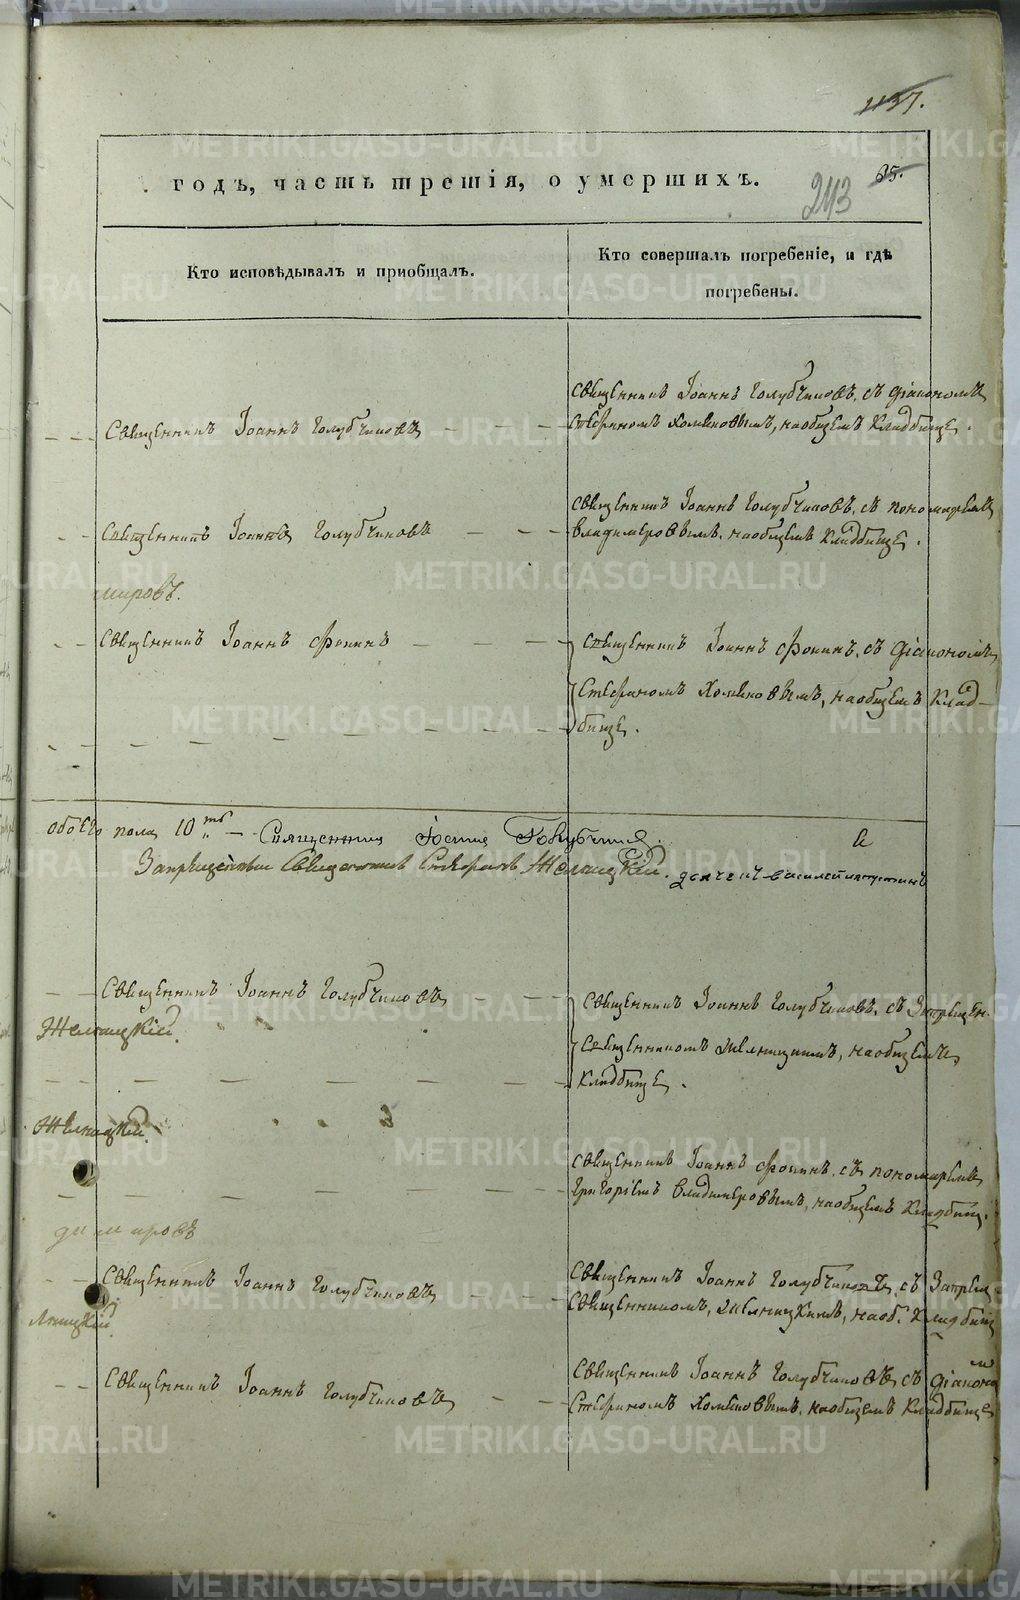 1137.
годъ, часть третія, о умершихъ.
65.
243
Кто исповѣдывалъ и пріобщалъ.
Кто совершалъ погребеніе, и гдѣ
погребены.
Священникъ Іоаннъ Голубчиковъ, съ діакономъ
Священникъ Іоаннъ Голубчиковъ
Стефаномъ Хомяковымъ, на общемъ кладбище.
Священникъ Іоаннъ Голубчиковъ, съ пономаремъ
Священникъ Іоаннъ Голубчиковъ
Владимеровымъ, на общемъ кладбище.
мировъ.
Священникъ Іоаннъ Фокинъ
Священникъ Іоаннъ Фокинъ, съ діакономъ
Стефаномъ Хомяковымъ, на общемъ клад-
бище.
обоего пола 10ть – Священникъ Голубчиков
Запрещенный Священникъ Стефанъ
Священникъ Іоаннъ Голубчиковъ
Священникъ Іоаннъ Голубчиковъ, съ Запрещен.
Священникомъ на общемъ
кладбище.
Священникъ Іоаннъ Фокинъ, съ пономаремъ
Григоріемъ Владимеровымъ, на общемъ кладбищ.
димировъ
Священникъ Іоаннъ Голубчиковъ, съ Запрещ.
Священникъ Іоаннъ Голубчиковъ
Священникомъ, на об. кладбищ
Священникъ Іоаннъ Голубчиковъ съ діаконом
Священникъ Іоаннъ Голубчиковъ
Стефаномъ Хомяковымъ, на общемъ кладбище
METRIKI.GASO-URAL.RU